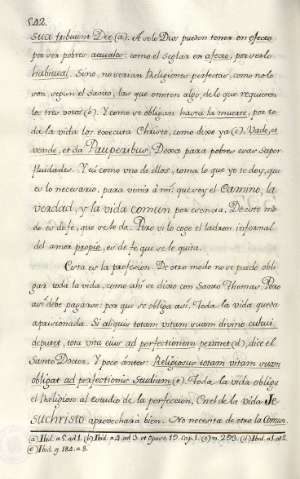 542.
sua tribuens Deo (a). A solo Dios pueden tener en efecto
por ser pobres actuales: como el seglar en afecto, por serlo
habitual. Sino, no serian Religiones perfectas, como no lo
son, segun el Santo, las que omiten algo, de lo que requieren
los tres votos (b). Y como se obligan hasta la muerte, por to-
da la vida los executa Christo, como dixo ya (c). Vade, et
vende, et da Pauperibus; Dexa para pobres esas super-
fluidades. Y asi como uno de ellos, toma lo que yo te doy, que
es lo necesario, para venir à mi: que soy el Camino, la
verdad, y la vida comun por esencia. De otro mo-
do es de fe, que se le da. Pero si lo coge el ladron infernal
del amor propio, es de fe que se le quita.
Esta es la profesion. De otro modo no se puede obli-
gar toda la vida, como ahi se dixo con Santo Thomas. Pero
asi debe pagarse: por que se obliga asi. Toda la vida queda
aprisionada. Si aliquis totam vitam suam divino cultui
deputet, tota vita eius ad perfectionem pertinet (d), dice el
Santo Doctor. Y poco antes: Religiosus totam vitam suam
obligat ad perfectionis studium (e). Toda la vida obliga
el Religioso al estudio de la perfeccion. En el de la vida Je-
suchristo aprovechará bien. No necesita de otro la Comun.
(a) Ibid. a. 5. ad 1. (b) Ibid. a. 4. ad 3. et Opusc. 19. cap. 1. (c) n. 293. (d) Ibid. a. 1. ad 2.
(e) Ibid. q. 184. a. 8.